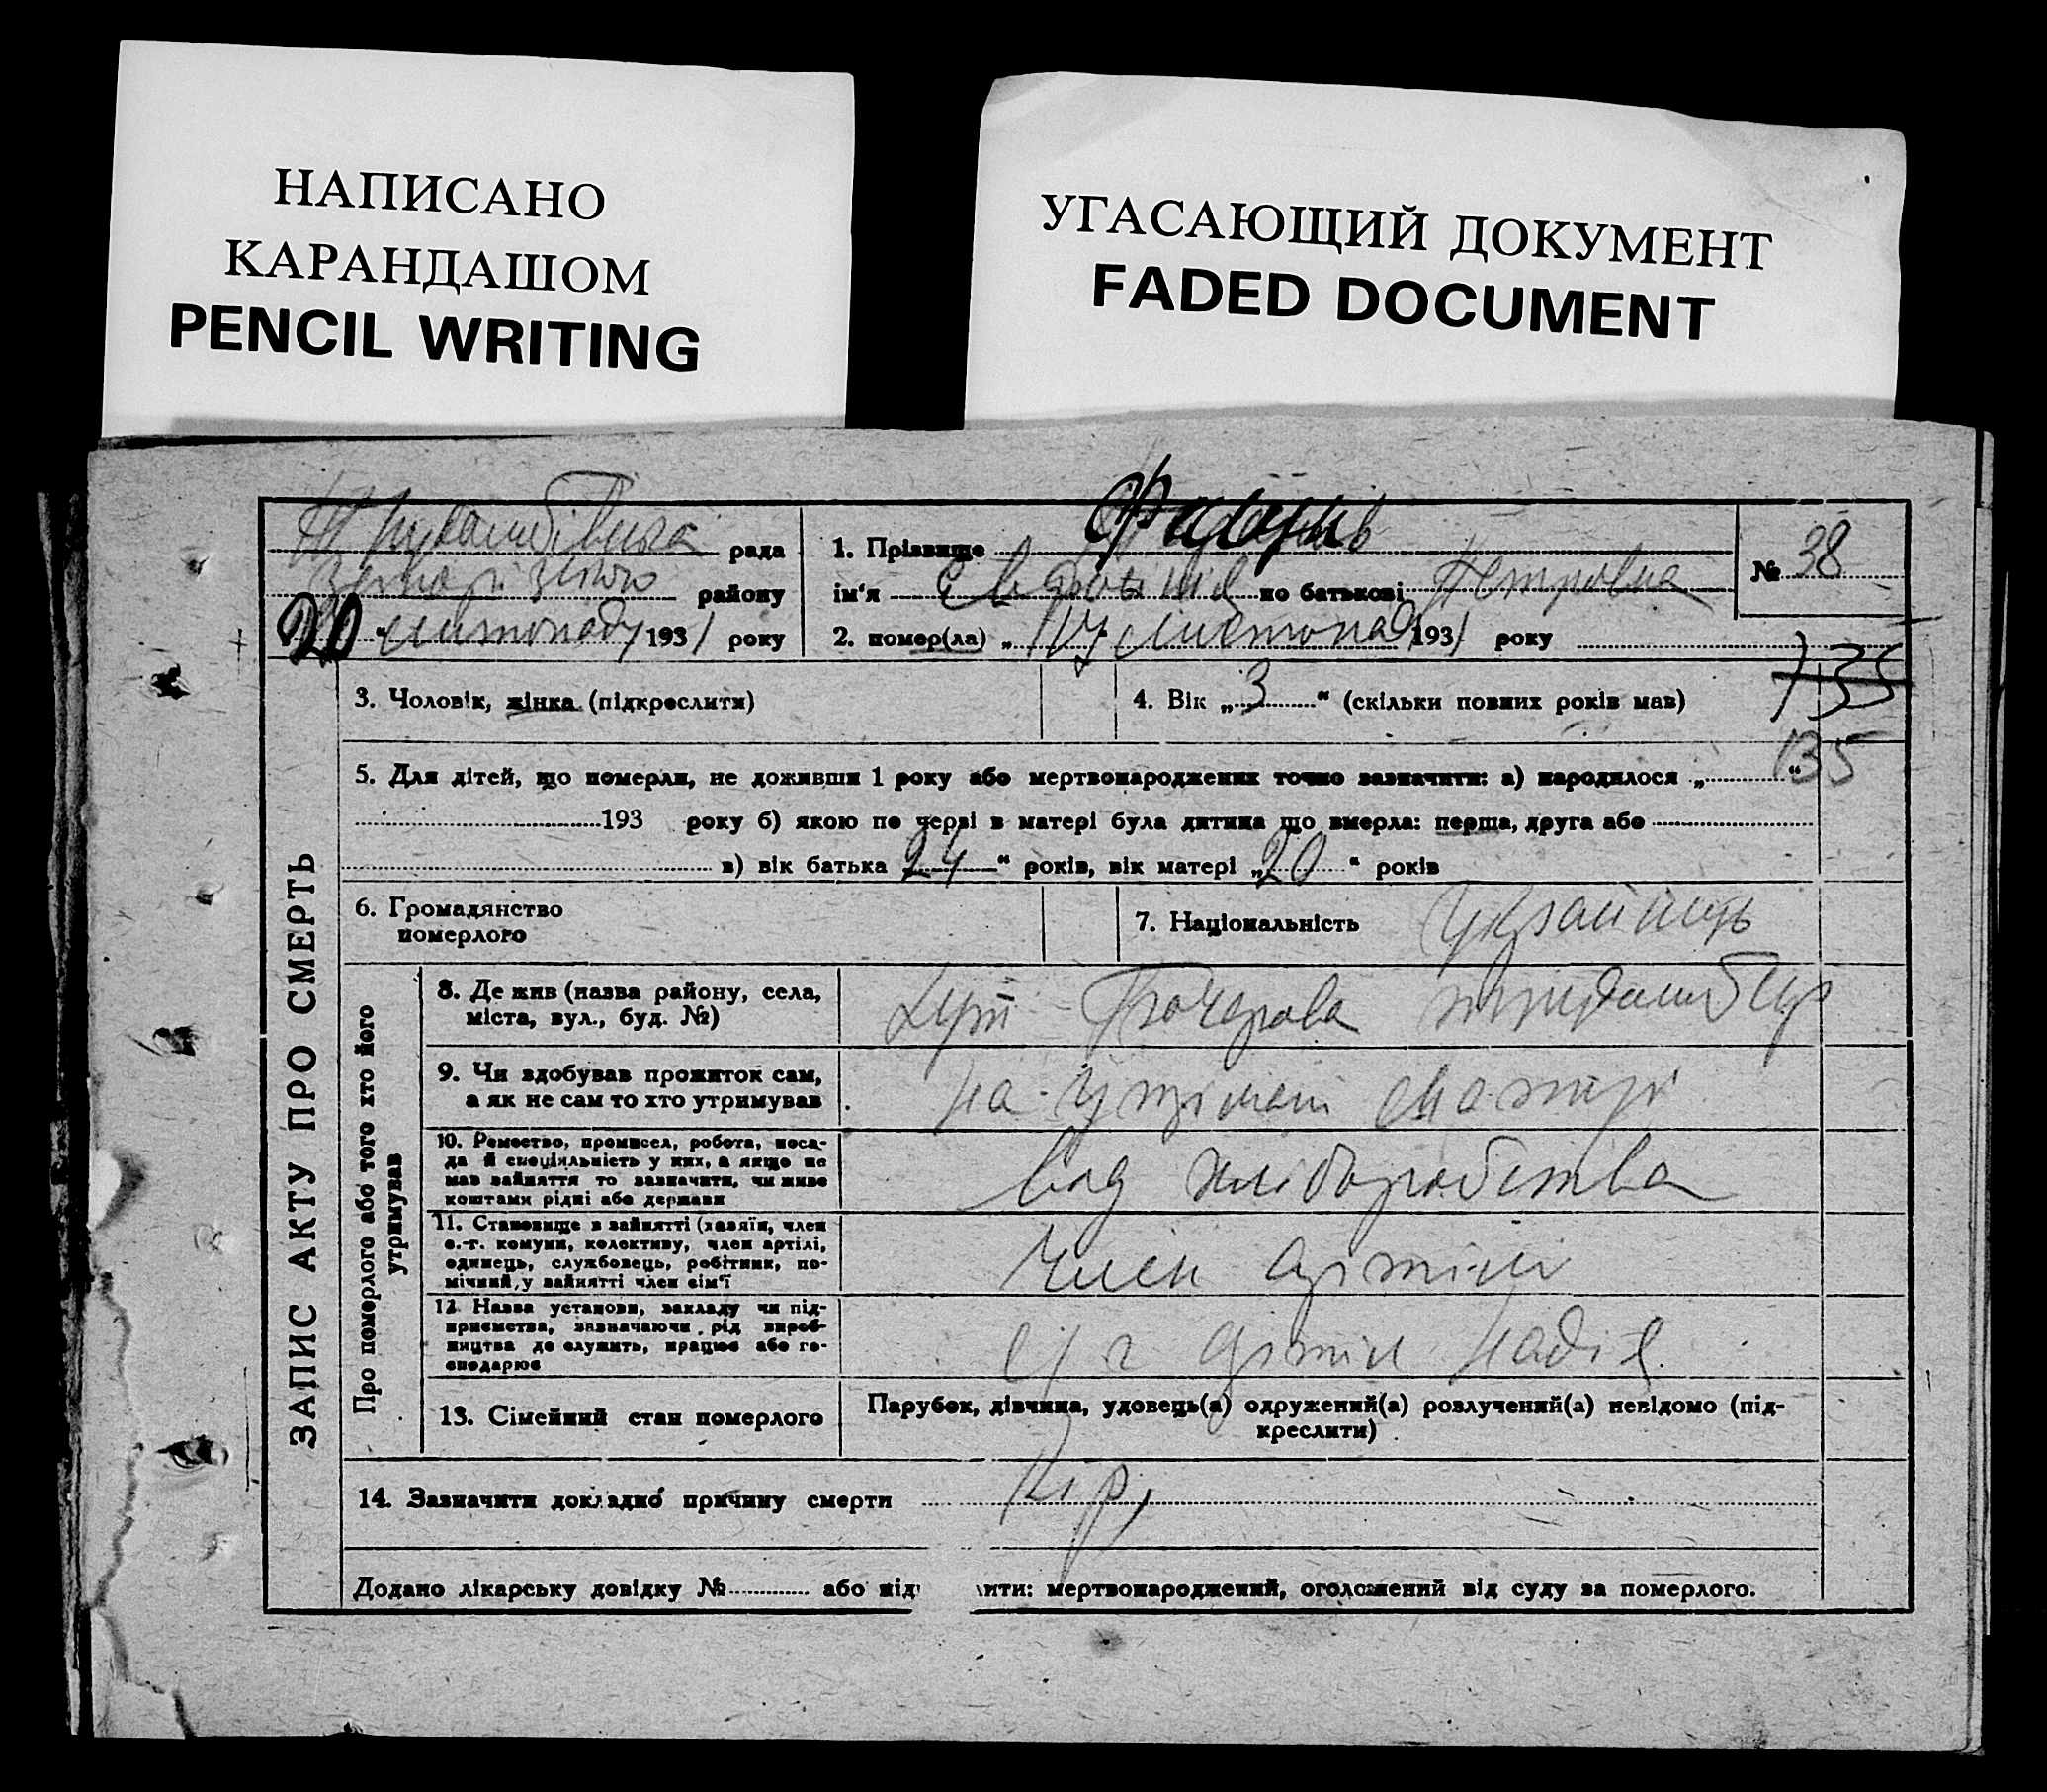 НАПИСАНО
КАРАНДАШОМ
PENCIL WRITING
УГАСАЮЩИЙ ДОКУМЕНТ
FADED DOCUMENT
рада
району
20 листопаду 1931 року
1. Прізвище
ім'я по батькові Петровна
2. помер(ла) „ листопад 1931 року
№ 38
735
135
ЗАПИС АКТУ ПРО СМЕРТЬ
3. Чоловік, жінка (підкреслити)
4. Вік „3“ (скільки повних років мав)
5. Для дітей, що померли, не доживши 1 року або мертвонароджених точно зазначити: а) народилося „ “
193 року б) якою по черзі в матері була дитина що вмерла: перша, друга або
в) вік батька 24“ років, вік матері „20“ років
6. Громадянство
померлого
7. Національність Україніць
Про померлого або того хто його
утримував
8. Де жив (назва району, села,
міста, вул., буд. №)
хут
9. Чи здобував прожиток сам,
а як не сам то хто утримував
на матері
10. Ремество, промисел, робота, поса-
да й спеціяльність у них, а якщо не
мав зайняття то зазначити, чи живе
коштами рідні або держави
від хліборобства
11. Становище в зайнятті (хазяїн, член
с.-г. комуни, колективу, член артілі,
одинець, службовець, робітник, по-
мічний у зайнятті член сім'ї
член артілі
12. Назва установи, закладу чи під-
приємства, зазначаючи рід вироб-
ництва де служить, працює або го-
сподарює
с г артіл надія
13. Сімейний стан померлого
Парубок, дівчина, удовець(а) одружений(а) розлучений(а) невідомо (під-
креслити)
14. Зазначити докладно причину смерти кір
Додано лікарську довідку № або підк ити: мертвонароджений, оголошений від суду за померлого.